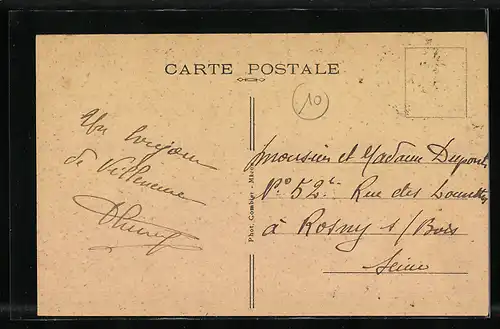 CARTE POSTALE
10
Un bonjour
de Villeneuve
Phot. Combier - Mâcon
Monsieur et Madame Dupont
N° 52 Rue des
à Rosny s/Bois
Seine